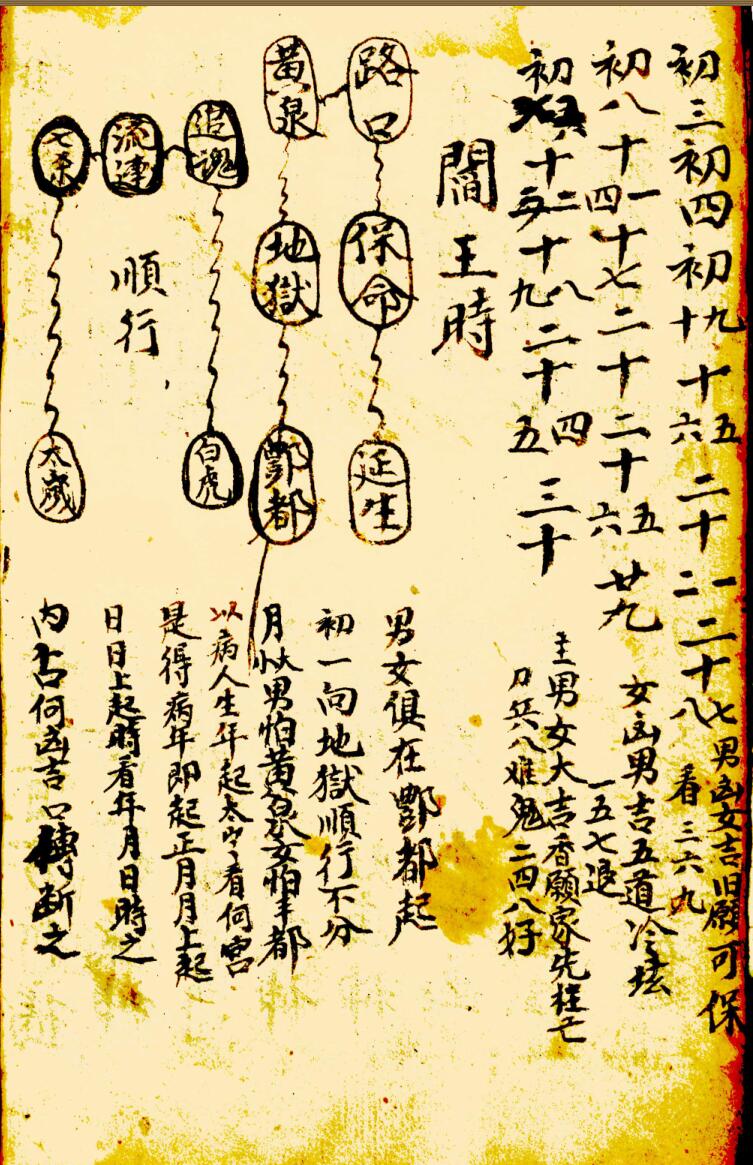 初三初四初九十十五六二十一二二十七八男凶女吉旧願可保
看三六九
初八十一四十七二十二十五六廿九女凶男吉五道冷坛
一五七退
初五六十二十八九二十四五三十主男女大吉香願家先枉亡
刀兵八难鬼二四八好
閻王時
路口
保命
延生
黄泉
地獄
酆都
追魂
白虎
流連
順行
七杀
太歲
男女俱在酆都起
初一向地獄順行不分
月大小男怕黄泉女怕丰都
以病人生年起太岁看何宫
是得病年即起正月月上起
日日上起時看年月日時之
内占何凶吉口傳断之